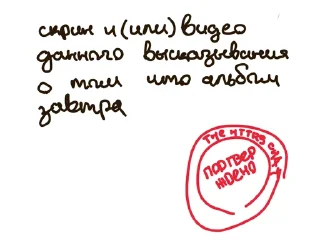 скрин и(или)видео
данного высказывания
о том што альбом
завтра
ПОДТВЕР
ЖДЕНО